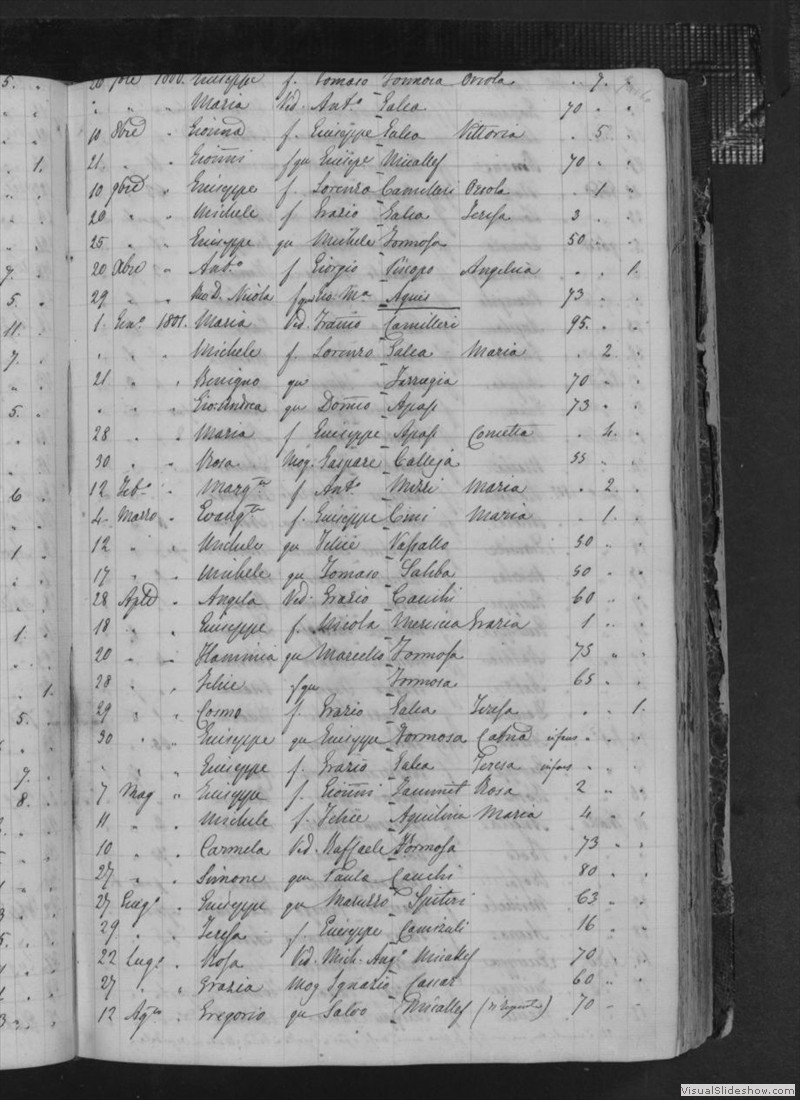 5. 26 7bre 1800. Giuseppe f. Tomaso Formosa Orsola . 7. .
" " " Maria Vid. Ant.o Galea 70 . .
10 8bre " Gionna f. Giuseppe Galea Vittoria . 5 .
1. 21 " " Gionni f qu Giusepe Micallef 70 . .
10 9bre " Giuseppe f. Lorenzo Camilleri Orsola . 1 .
20 " " Michele f Grazio Galea Teresa 3 . .
25 " " Giuseppe qu Michele Formosa 50 . .
7. 20 Xbre " Ant.o f Giorgio Piscopo Angelica . . 1.
5. 29 " " Rev D. Nicola f qu Gio: Ma Aquis 73 . .
11. 1. Gen.o 1801. Maria Vid. Camilleri 95. . .
7. " " " Michele f. Lorenzo Galea Maria . 2 .
21 " " Benigno qu Farrugia 70 . .
5. " " " Gio: Andrea qu Domco Apap 73 . .
28 " " Maria f Giuseppe Apap . 4. .
30 " " Rosa Mog. Gaspare Calleja 55 " .
6 12 Feb.o " Marg.ta f Ant.o Maria . 2 .
4 Marzo " Evang.ta f. Giuseppe Cini Maria . 1 .
1 12 " " Michele qu Felice Vassallo 50 . .
17 " " Michele qu Tomaso Saliba 50 . .
28 Aple " Angela Vid. Grazio Cauchi 60 . .
1. 18 " " Giuseppe f. Nicola Mericcia Grazia 1 " .
20 " " Flaminia qu Marcello Formosa 75 " .
1. 28 " " Felice f qu Formosa 65 . .
5. 29 " " Cosmo f. Grazio Galea Teresa . . 1.
30 " " Giuseppe qu Giuseppe Formosa infans . . .
7. " " " Giuseppe f. Grazio Galea Teresa infans . . .
8. 7 Mag " Giuseppe f. Gionni Zammit Rosa 2 " .
11 " " Michele f. Felice Aquilina Maria 4 . .
10 " " Carmela Vid. Raffaele Formosa 73 . .
27 " " Simone qu Paulo Cauchi 80 . .
27 Giug.o " Giuseppe qu Maruzzo Spiteri 63 . .
29 " " Teresa f. Giuseppe Camizuli 16 . .
22 Lug.o " Rosa Vid. Mich. Ang.o Micallef 70 . .
27 " " Grazia Mog Ignazio Cassar 60 . .
12 Ag.to " Gregorio qu Salvo Micallef 70 . .
VisualSlideshow.com